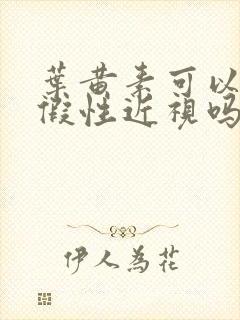 葉黃素可以
假性近視嗎
伊人為花